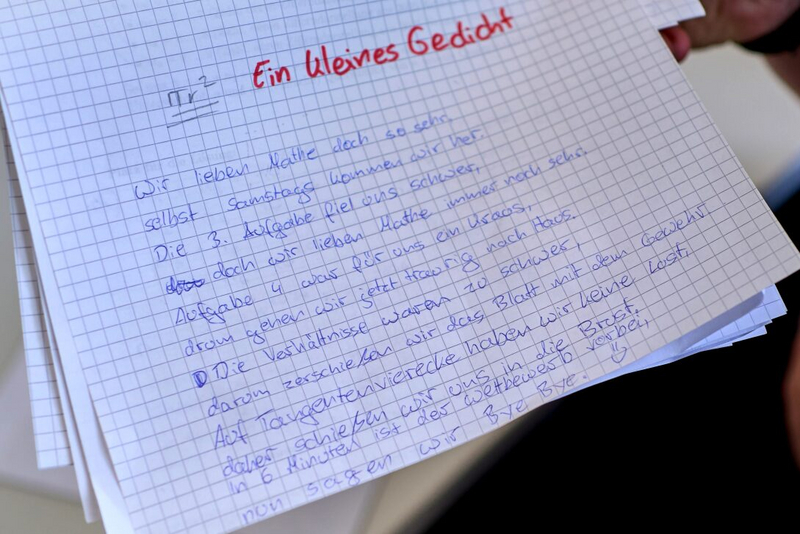 Ein kleines Gedicht
πr²
Wir lieben Mathe doch so sehr,
selbst Samstags kommen wir her.
Die 3. Aufgabe fiel uns schwer,
doch wir lieben Mathe immer noch sehr.
Aufgabe 4 war für uns ein Kraus,
drum gehen wir jetzt traurig nach Haus.
Die Verhältnisse waren zu schwer,
darum zerschießen wir das Blatt mit dem Gewehr.
Auf Tangentenvierecke haben wir keine Lust,
daher schießen wir uns in die Brust.
In 6 Minuten ist der Wettbewerb vorbei,
nun sagen wir Bye Bye.